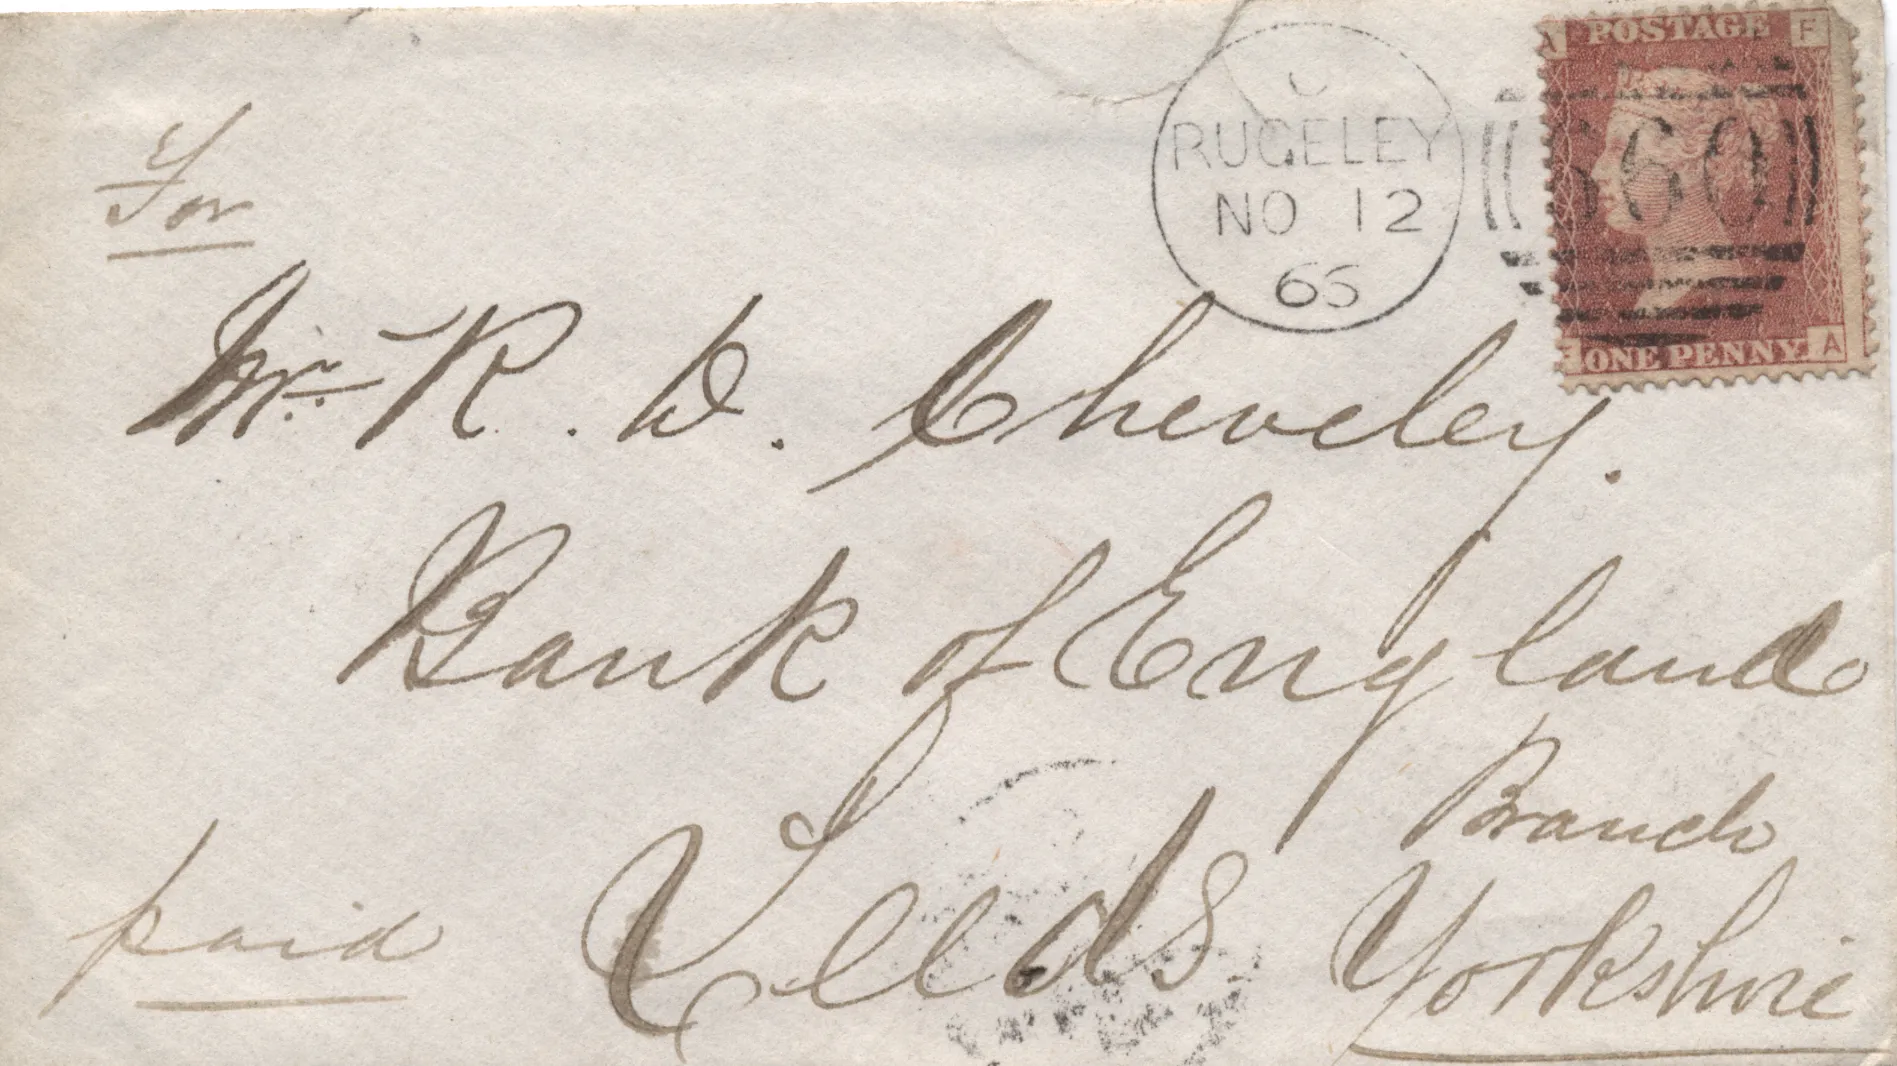 A POSTAGE F
C
RUGELEY
NO 12
65
660
F ONE PENNY A
For
Mr. R. D. Cheveley.
Bank of England
Branch
Leeds Yorkshire
paid